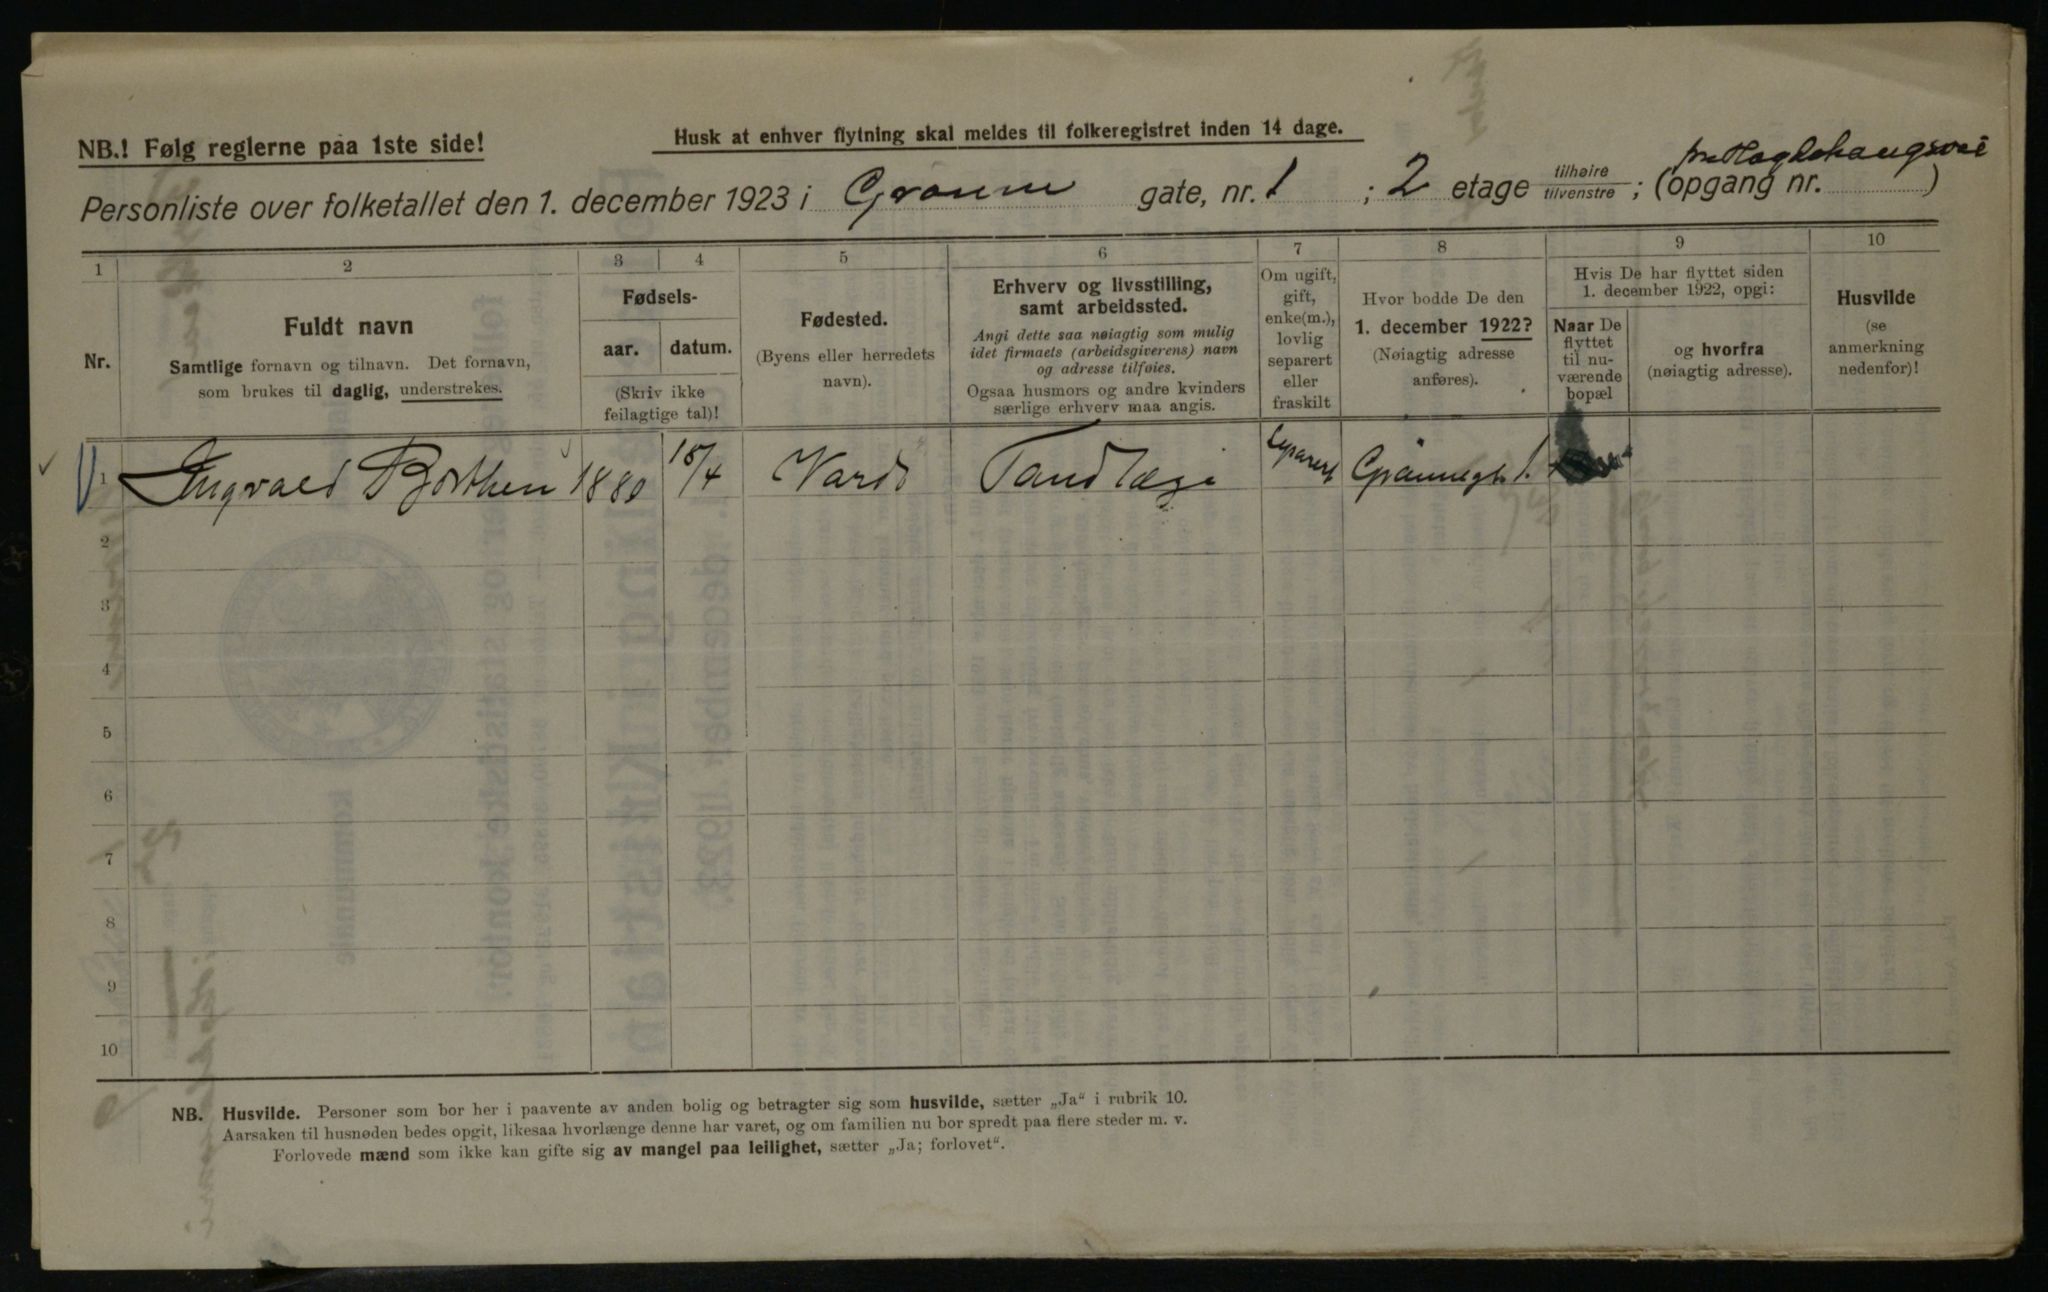 NB.! Følg reglerne paa 1ste side!
Husk at enhver flytning skal meldes til folkeregistret inden 14 dage.
Personliste over folketallet den 1. december 1923 i Grønne gate, nr. 1 ; 2 etage tilhøire/tilvenstre ; (opgang nr. )
1 2 3 4 5 6 7 8 9 10
Nr.
Fuldt navn
Samtlige fornavn og tilnavn. Det fornavn,
som brukes til daglig, understrekes.
Fødsels-
aar. datum.
(Skriv ikke
feilagtige tal)!
Fødested.
(Byens eller herredets
navn).
Erhverv og livsstilling,
samt arbeidssted.
Angi dette saa nøiagtig som mulig
idet firmaets (arbeidsgiverens) navn
og adresse tilføies.
Ogsaa husmors og andre kvinders
særlige erhverv maa angis.
Om ugift,
gift,
enke(m.),
lovlig
separert
eller
fraskilt
Hvor bodde De den
1. december 1922?
(Nøiagtig adresse
anføres).
Hvis De har flyttet siden
1. december 1922, opgi:
Naar De
flyttet
til nu-
værende
bopæl
og hvorfra
(nøiagtig adresse).
Husvilde
(se
anmerkning
nedenfor)!
1 Ingvald Borthen 1880 18/4 Vardø Tandlæge Separert Grønnegt. 1.
2
3
4
5
6
7
8
9
10
NB. Husvilde. Personer som bor her i paavente av anden bolig og betragter sig som husvilde, sætter „Ja“ i rubrik 10.
Aarsaken til husnøden bedes opgit, likesaa hvorlænge denne har varet, og om familien nu bor spredt paa flere steder m. v.
Forlovede mænd som ikke kan gifte sig av mangel paa leilighet, sætter „Ja; forlovet“.